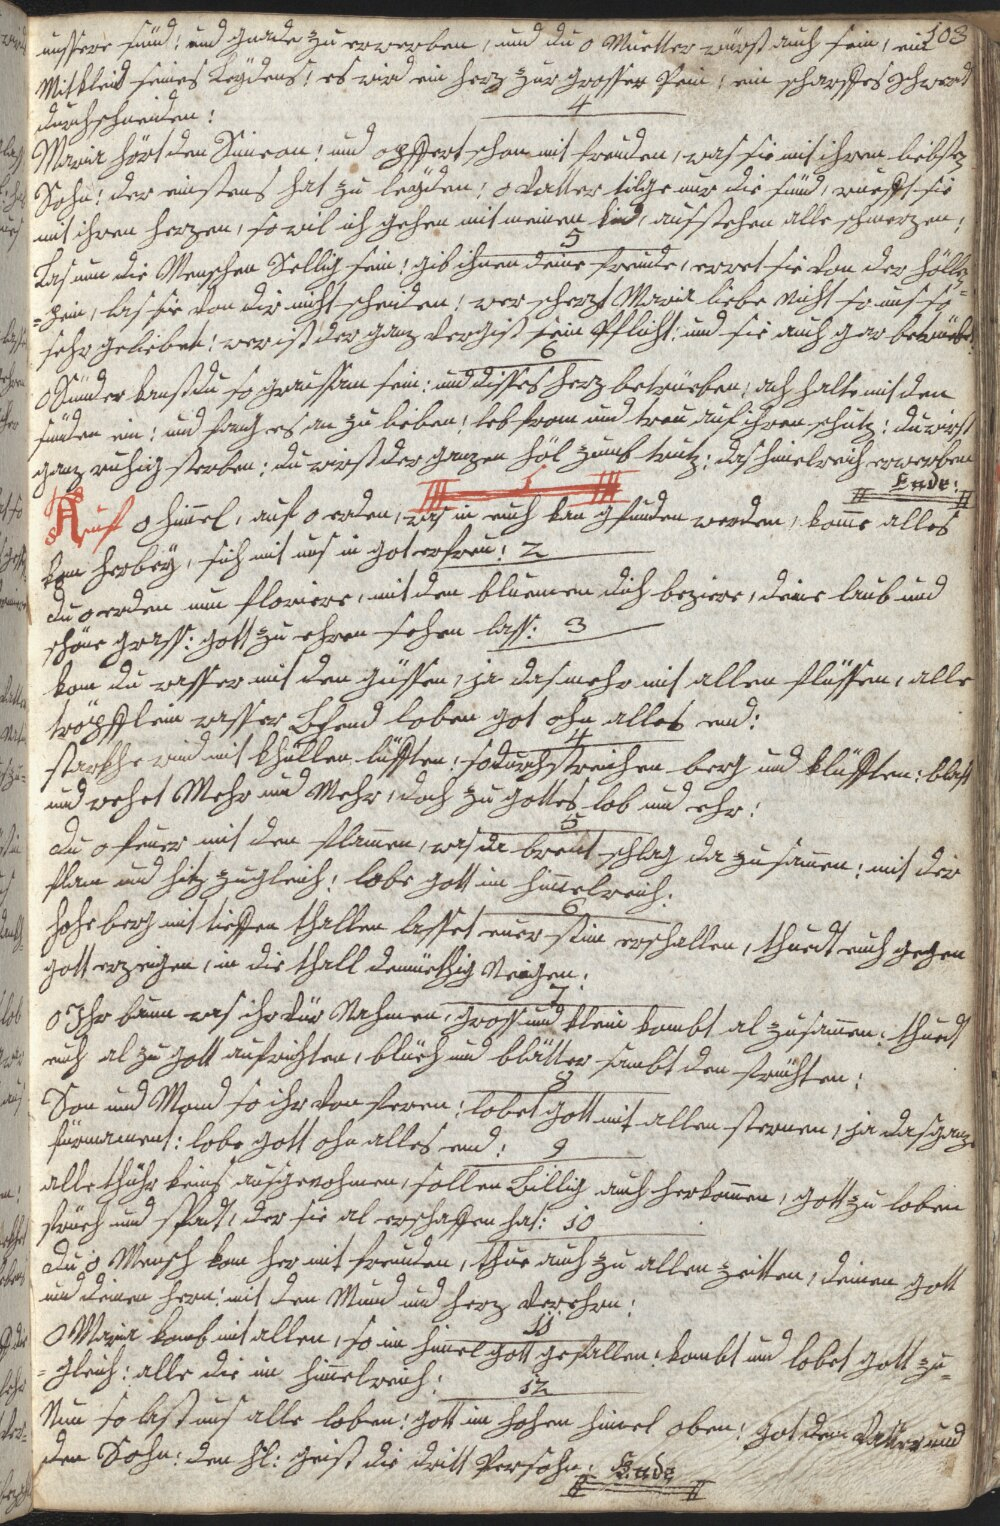 103
unssere sünd: und gnade zu erwerben, und du o Muetter würst auch sein, ein
Mitkleid seines Leÿdens, es wird ein herz zur grossen Pein: ein scharffes schwerd
durchschneiden:
4
Maria hört den Simeon: und opffert schon mit freuden, was sie mit ihren liebsten
Sohn: der einstens hat zu leÿden: o Vatter tilge nur die sünd, rueffts sie
mit ihren herzen, so wil ich gehen mit meinem kind, ausstehen alle schmerzen:
5
Las nun die Menschen Sellig sein: gib ihnen deine freude, erret sie von der hölle
=pein, las sie von dir nicht scheiden: wer scherzt Maria liebe nicht so uns so
sehr geliebet: wer ist der ganz vergist sein Pflicht: und sie auch gar betrüebt:
6
O Sünder kanst du so graussam sein: und disses herz betrüeben, ach halte mit den
sünden ein: und fang es an zu lieben: leb from und treu auf ihren schutz: du wirst
ganz ruhig sterben: du wirst der ganzen höl zum trutz: das himelreich erwerben
Ende:
1
Auf o himel, auf o erden, was in euch kan gfunden werden, komme alles
kom herbeÿ, sich mit uns in got erfreu: 2
du o erden nun floriere, mit den bluemen dich beziere, deine laub und
schöne grass: gott zu ehren sehen lass: 3
kom du wasser mit den güssen, ja das mehr mit allen flüssen, alle
tröpfflein wasser Essend loben got ohn alles end:
4
starkhe wind mit khüllen lüfften: so durchstreichen berg und klüfften: blast
und wehet Mehr und Mehr, doch zu gottes lob und ehr:
5
du o feuer mit den flamen, was da brent schlag da zusamen: mit der
flam und hitz zugleich: lobe gott im himelreich:
6
hohe berg mit tieffen thallen lasset euer stim erschallen, thuedt euch gegen
gott erzeigen, in die thall demüethig Neigen:
7
o Ihr baum was ihr für Nahmen, gross und klein kombt al zusamen: thuedt
euch al zu gott aufrichten, blüeh und blätter sambt den früchten:
8
Son und Mond so ihr von feren: lobet gott mit allen sternen, ja das ganze
fürmament: lobe gott ohn alles end: 9
alle thühr keins ausgenohmen, sollen Billig auch herkomen, gott zu loben
frueh und spadt, der sie al erschaffen hat: 10
du o Mensch kom her mit freuden, thue auch zu allen zeitten, deinen gott
und deinen hern: mit den Mund und herz verehrn:
11
O Maria komb mit allen, so im himel gott gefallen: kombt und lobet gott zu=
=gleich: alle die im himelreich:
12
Nun so last uns alle loben: gott im hohen himel oben: got dem Vatter und
den Sohn: den hl: geist die dritt Persohn: Ende